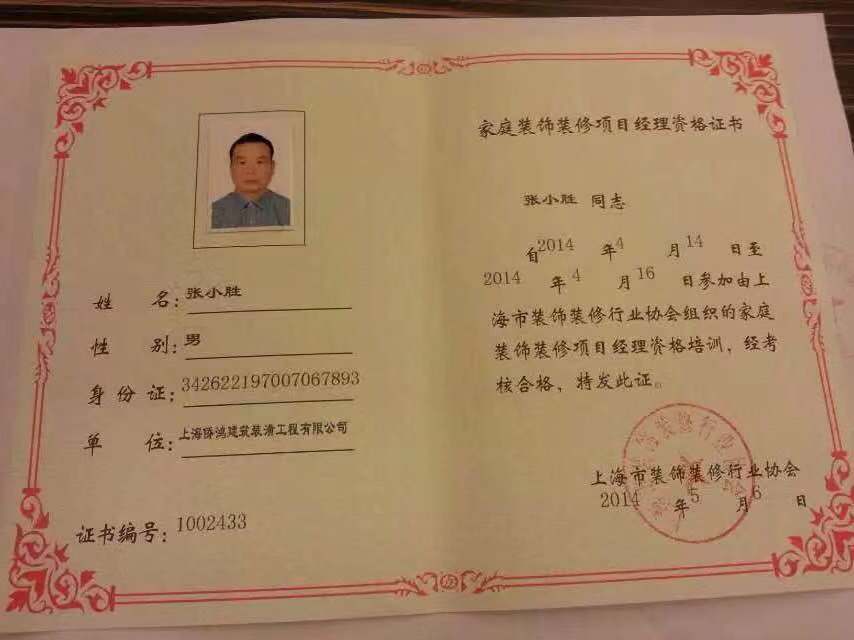 姓 名：张小胜
性 别：男
身份证：342622197007067893
单 位：上海侨鸿建筑装潢工程有限公司
证书编号：1002433
家庭装饰装修项目经理资格证书
张小胜 同志
自2014 年4 月14 日至
2014 年4 月16 日参加由上
海市装饰装修行业协会组织的家庭
装饰装修项目经理资格培训，经考
核合格，特发此证。
上海市装饰装修行业协会
2014 年5 月6 日